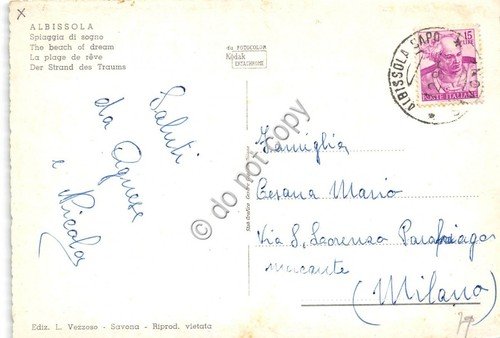 x
ALBISSOLA
Spiaggia di sogno
The beach of dream
La plage de rêve
Der Strand des Traums
da FOTOCOLOR
Kodak
EKTACHROME
ALBISSOLA CAPO
15
LIRE
POSTE ITALIANE
Saluti
da Agnese
e Nicola
Famiglia
Cesana Mario
Via S. Lorenzo Parabiago
(Milano)
© do not copy
Ediz. L. Vezzoso - Savona - Riprod. vietata